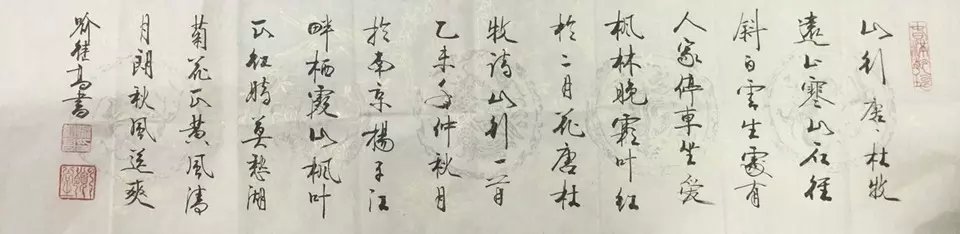 山行唐、杜牧
遠上寒山石径
斜白雲生處有
人家停車坐爱
枫林晚霜叶红
於二月花唐杜
牧诗山行一首
乙未年仲秋月
於南京楊子江
畔栖霞山枫叶
正红時莫愁湖
菊花正黄风清
月朗秋风送爽
喻继高書